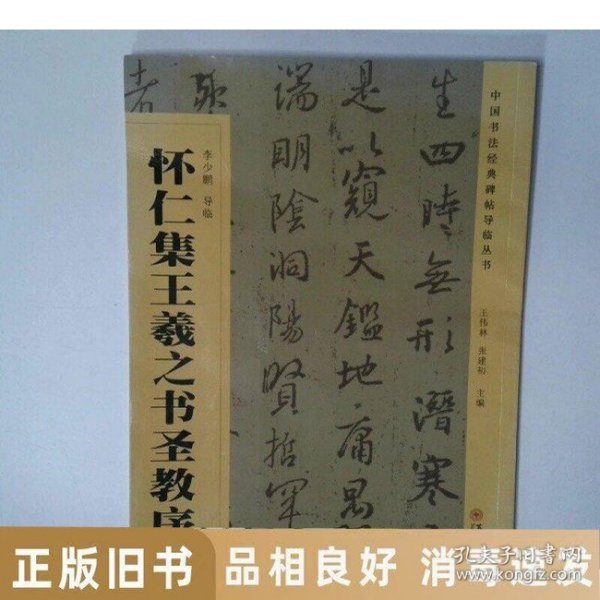 中国书法经典碑帖导临丛书
王伟林 张建初 主编
生四时无形潜寒
是以窥天鑑地庸愚
端明陰洞陽賢哲罕
者
李少鹏 导临
怀仁集王羲之书圣教序
正版旧书 品相良好 消毒速发
孔夫子旧书网
www.kongfz.com